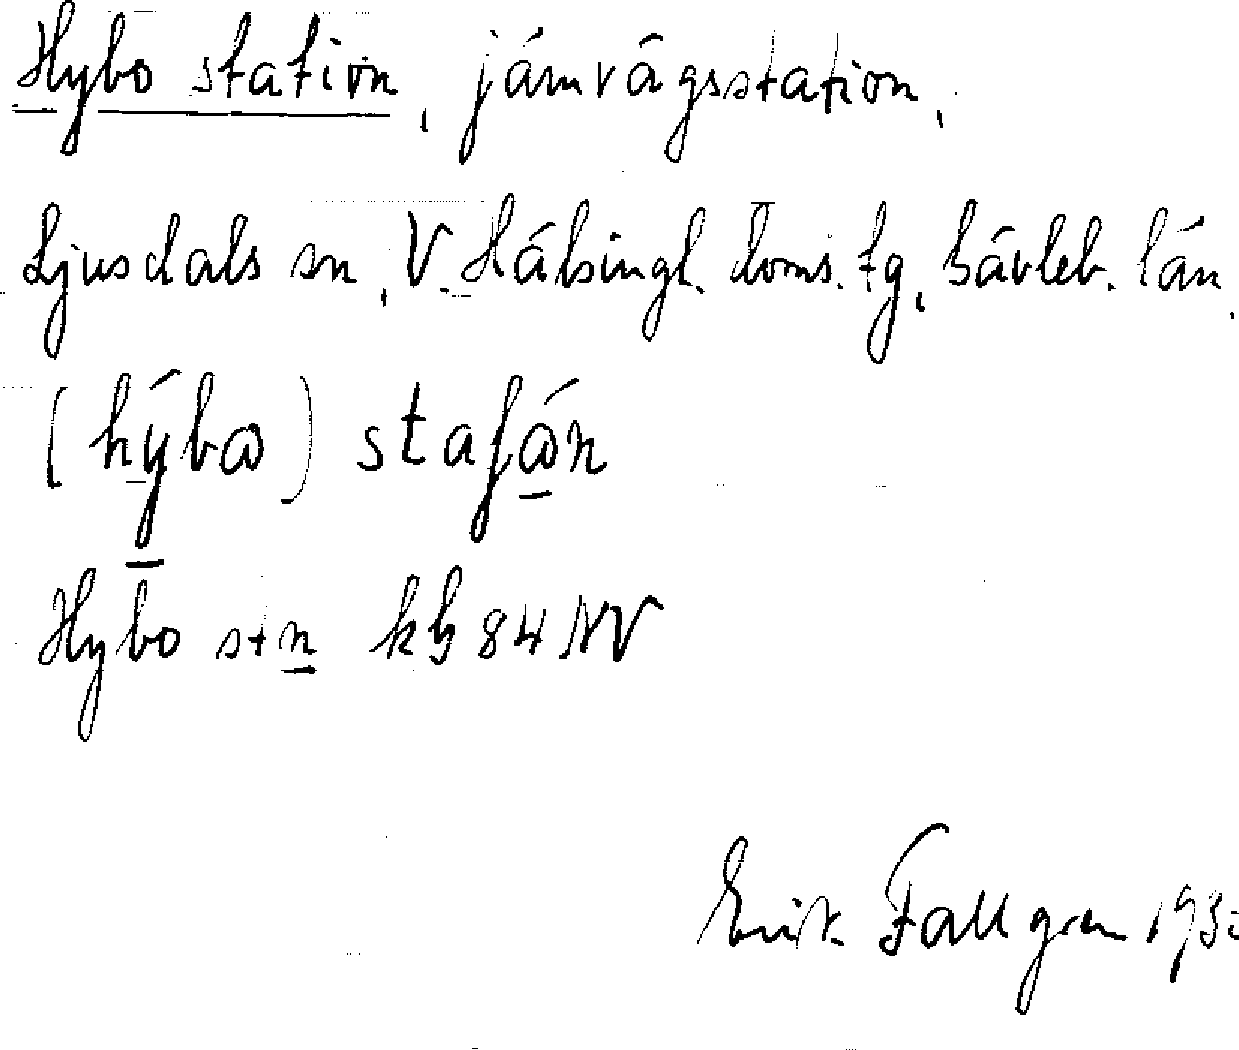 Hybo station, järnvägsstation,
Ljusdals sn, V. Hälsingl. doms. tg, Gävleb. län.
(hýbɷ) staʃɷ́n
Hybo stn kb 84 NV
Erik Fallgren 193